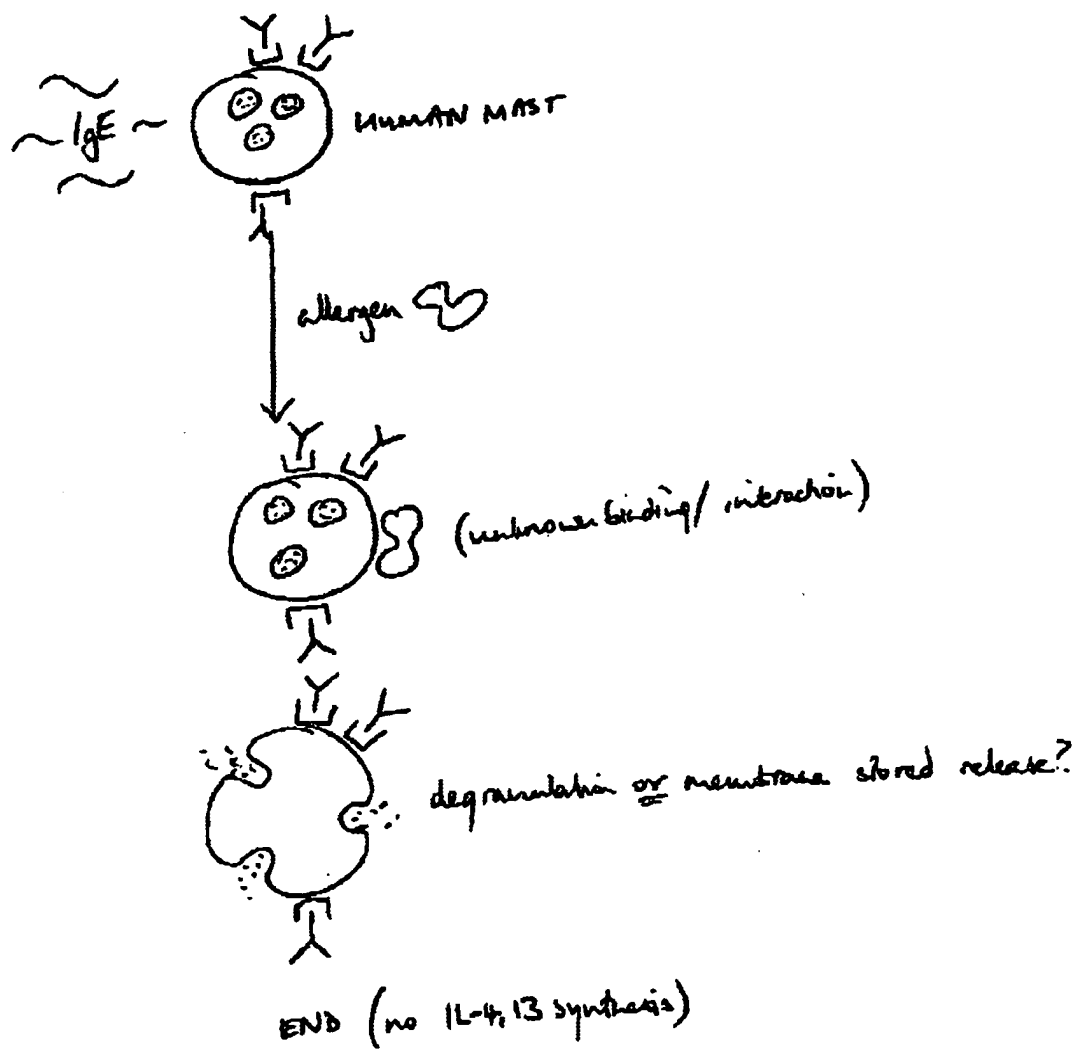 IgE
HUMAN MAST
allergen
(unknown binding/interaction)
degranulation or membrane stored release?
END (no IL-4, 13 synthesis)